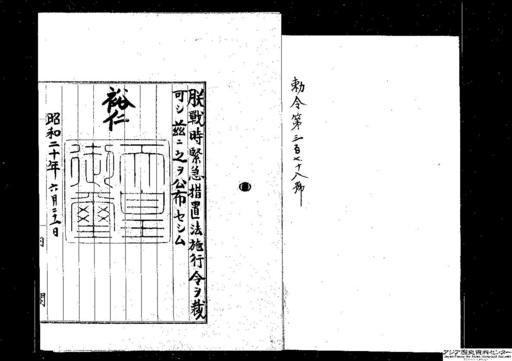 勅令第三百七十八號
朕戰時緊急措置法施行令ヲ裁
可シ茲ニ之ヲ公布セシム
裕仁
天皇御璽
昭和二十年六月二十二日
アジア歴史資料センター
Japan Center for Asian Historical Records